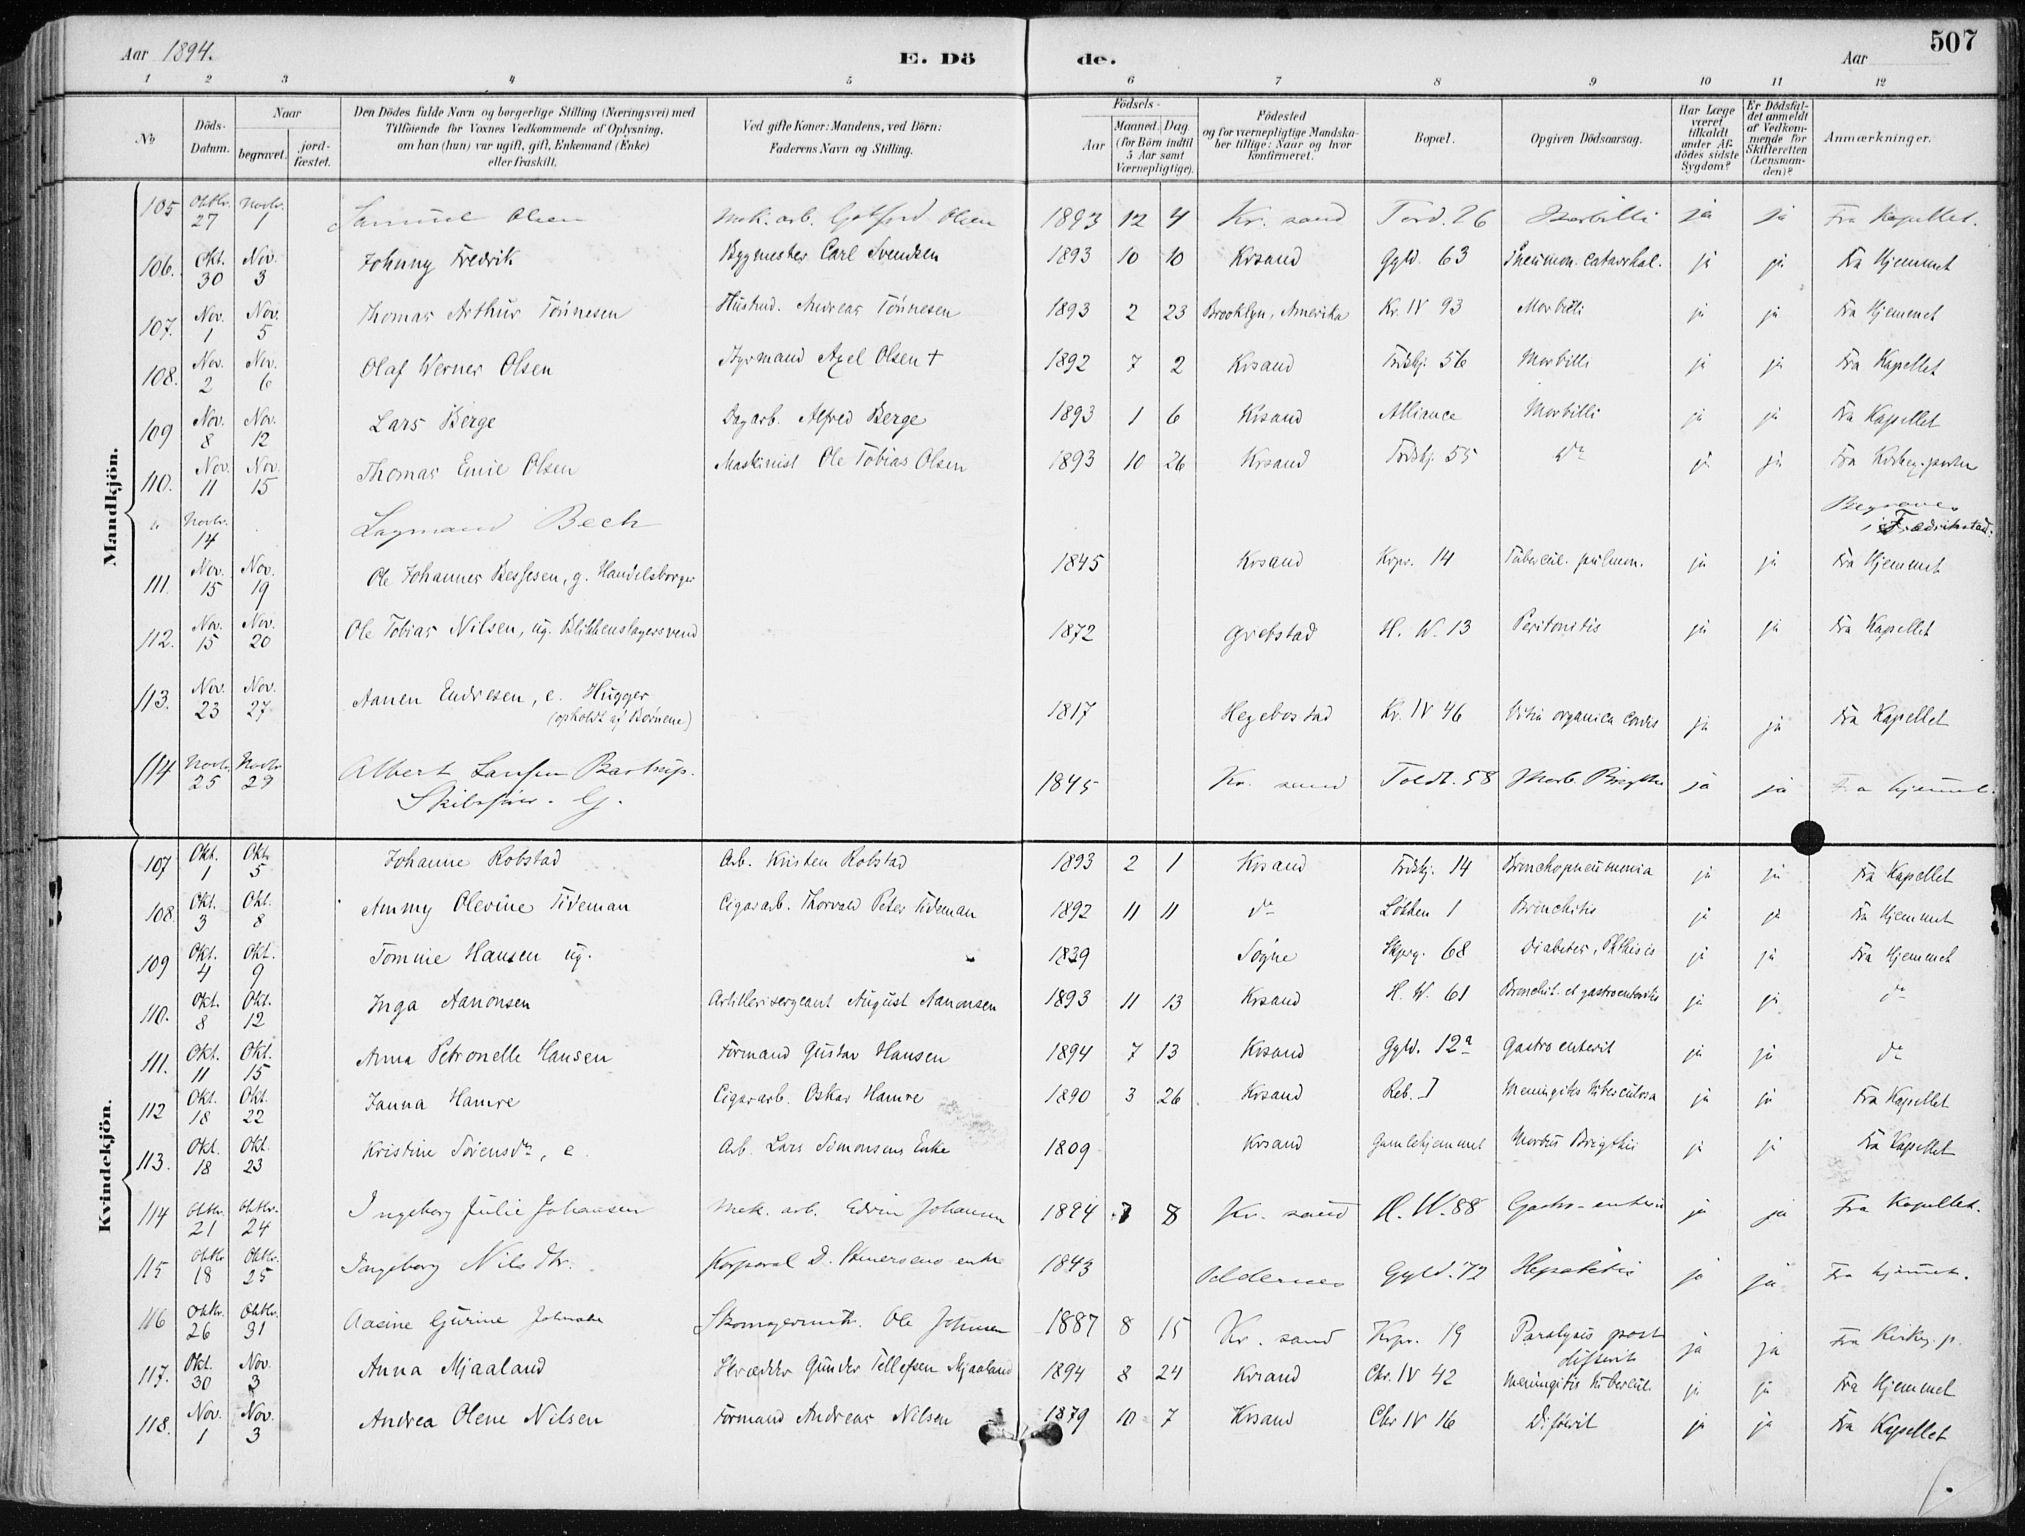 507
Aar 1894. E. Dö de. Aar
1 2 3 4 5 6 7 8 9 10 11 12
No Döds-Datum. Naar begravet. jordfæstet. Den Dödes fulde Navn og borgerlige Stilling (Næringsvei) med Tilföiende for Voxnes Vedkommende af Oplysning, om han (hun) var ugift, gift, Enkemand (Enke) eller fraskilt. Ved gifte Koner: Mandens, ved Börn: Faderens Navn og Stilling. Födsels- Aar Maaned. Dag. (for Börn indtil 5 Aar samt Værnepligtige). Födested og for værnepligtige Mandskaber tillige: Naar og hvor konfirmeret. Bopæl. Opgiven Dödsaarsag. Har Læge været tilkaldt under Afdödes sidste Sygdom? Er Dödsfaldet anmeldt af Vedkommende for Skifteretten (Lensmanden)? Anmærkninger.
Mandkjön.
105 Oktbr. 27 Novbr. 1 Samuel Olsen Mek. arb. Gotfred Olsen 1893 12 4 Kr. sand Tord. 26 Morbilli ja ja Fra Kapellet.
106. Okt. 30 Nov. 3 Johnny Fredrik Bygmester Carl Svendsen 1893 10 10 Krsand Gyld. 63 Pneumon. catarrhal. ja ja Fra Hjemmet
107. Nov. 1 Nov. 5 Thomas Arthur Tönnesen Andreas Tönnesen 1893 2 23 Brooklyn, Amerika Kr. IV 93 Morbilli ja ja Fra Hjemmet
108. Nov. 2 Nov. 6 Olaf Werner Olsen Styrmand Axel Olsen † 1892 7 2 Krsand Fredskj. 56 Morbilli ja ja Fra Kapellet
109 Nov. 8 Nov. 12 Lars Berge Dagarb. Alfred Berge 1893 1 6 Krsand Alliance Morbilli ja ja Fra Kapellet
110. Nov. 11 Nov. 15 Thomas Emil Olsen Maskinist Ole Tobias Olsen 1893 10 26 Krsand Fredskj. 55 do ja ja Fra Kirkeg. porten
" Novbr. 14 Lagmand Bech Begraves i Fredrikstad.
111. Nov. 15 Nov. 19 Ole Johannes Bessesen, g. Handelsborger 1845 Krsand Krpr. 14 Tubercul. pulmon. ja ja Fra Hjemmet
112. Nov. 15 Nov. 20 Ole Tobias Nilsen, ug. Blikkenslagersvend 1872 Grebstad H. W. 13 Peritonitis ja ja Fra Kapellet
113. Nov. 23 Nov. 27 Aanen Endresen, e. Hugger
(opholdt af Børnene) 1817 Hegebostad Kr. IV 46 Vitia organica cordis ja ja Fra Kapellet
114 Novbr. 25 Novbr. 29 Albert Bastrup.
Skibsfører. G. 1845 Kr. sand Toldb. 58 Morb. Brigthi ja ja Fra hjemmet.
Kvindekjön.
107 Okt. 1 Okt. 5 Johanne Robstad Arb. Kristen Robstad 1893 2 1 Krsand Fredskj. 14 Bronchopneumonia ja ja Fra Kapellet
108. Okt. 3 Okt. 8 Ammy Olevine Tideman Cigararb. Thorvald Peter Tideman 1892 11 11 do Løkken 1 Bronchitis ja ja Fra Hjemmet
109 Okt. 4 Okt. 9 Tomine Hansen ug. 1839 Søgne Skjerg. 68 Diabetes, Phthisis ja ja Fra Hjemmet
110. Okt. 8 Okt. 12 Inga Aanonsen Artillerisergeant August Aanonsen 1893 11 13 Krsand H. W. 61 Bronchit. et gastroenteritis ja ja do
111. Okt. 11 Okt. 15 Anna Petronelle Hansen Formand Gustav Hansen 1894 7 13 Krsand Gyld. 12a Gastroenterit ja ja do
112 Okt. 18 Okt. 22 Janna Hamre Cigararb. Oskar Hamre 1890 3 26 Krsand Reb. 1 Meningitis tuberculosa ja ja Fra Kapellet
113. Okt. 18 Okt. 23 Kristine Sørensdr, e. Arb. Lars Simonsens Enke 1809 Krsand Gamlehjemmet Morbus Brigthii ja ja Fra Kapellet
114 Oktbr. 21 Oktbr. 24 Ingeborg Julie Johansen Mek. arb. Edvin Johansen 1894 7 8 Kr. sand H. W. 88 Gastro-enterit ja ja Fra Kapellet.
115 Oktbr. 18 Oktbr. 25 Ingeborg Nilsdtr. Korporal D. enke 1843 Oddernes Gyld. 72 Hepatitis ja ja Fra hjemmet.
116 Oktbr. 26 Oktbr. 31 Aasine Gurine Johnsen Skomagermstr. Ole Johnsen 1887 8 15 Kr. sand Krpr. 19 Paralysis post difterit ja ja Fra Kirkeg. p.
117. Okt. 30 Nov. 3 Anna Mjaaland Skrædder Gunder Tellefsen Mjaaland 1894 8 24 Krsand Chr. IV 42 Meningitis tubercul. ja ja Fra Hjemmet
118. Nov. 1 Nov. 3 Andrea Olene Nilsen Formand Andreas Nilsen 1879 10 7 Krsand Chr IV 16 Difterit ja ja Fra Kapellet